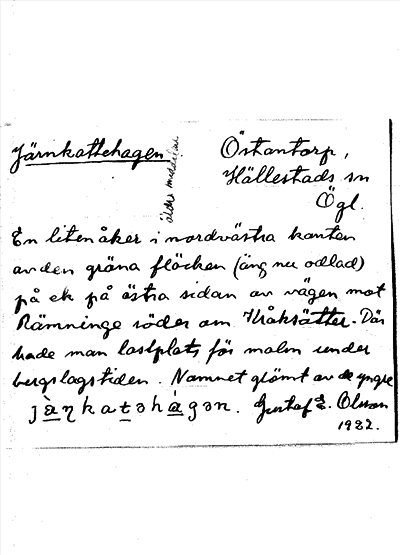 Järnkattehagen
äldre meddelare
Östantorp,
Hällestads sn
Ögl.
En liten åker i nordvästra kanten
av den gröna fläcken (äng nu odlad)
på ek på östra sidan av vägen mot
Rämninge söder om Kråksätter. Där
hade man lastplats för malm under
bergslagstiden. Namnet glömt av de yngre
Gustaf E. Olsson
1932.